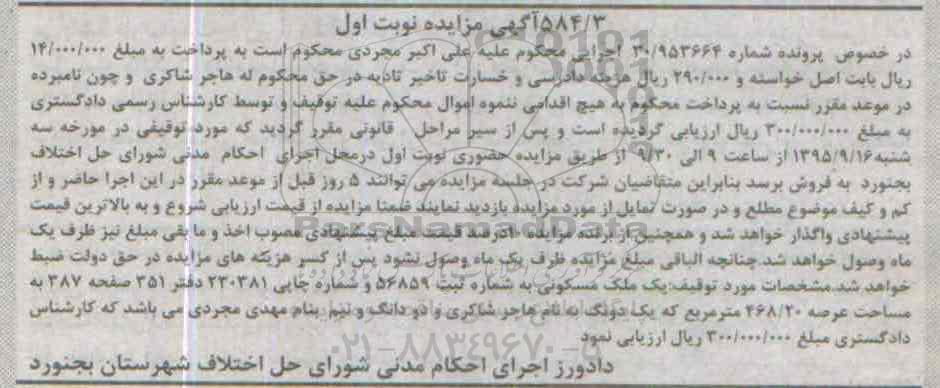 ۵۸۴/۳آگهی مزایده نوبت اول
در خصوص پرونده شماره ۳۰/۹۵۳۶۶۴ اجرایی محکوم علیه علی اکبر مجردی محکوم است به پرداخت به مبلغ ۱۴/۰۰۰/۰۰۰
ریال بابت اصل خواسته و ۲۹۰/۰۰۰ ریال هزینه دادرسی و خسارت تاخیر تادیه در حق محکوم له هاجر شاکری و چون نامبرده
در موعد مقرر نسبت به پرداخت محکوم به هیچ اقدامی ننموه اموال محکوم علیه توقیف و توسط کارشناس رسمی دادگستری
به مبلغ ۳۰۰/۰۰۰/۰۰۰ ریال ارزیابی گردیده است و پس از سیر مراحل قانونی مقرر گردید که مورد توقیفی در مورخه سه
شنبه۱۳۹۵/۹/۱۶ از ساعت ۹ الی ۹/۳۰ از طریق مزایده حضوری نوبت اول درمحل اجرای احکام مدنی شورای حل اختلاف
بجنورد به فروش برسد بنابراین متقاضیان شرکت در جلسه مزایده می توانند ۵ روز قبل از موعد مقرر در این اجرا حاضر و از
کم و کیف موضوع مطلع و در صورت تمایل از مورد مزایده بازدید نمایند ضمنا مزایده از قیمت ارزیابی شروع و به بالاترین قیمت
پیشنهادی واگذار خواهد شد و همچنین از برنده مزایده ۱۰درصد قیمت مبلغ پیشنهادی مصوب اخذ و ما بقی مبلغ نیز ظرف یک
ماه وصول خواهد شد.چنانچه الباقی مبلغ مزایده ظرف یک ماه وصول نشود پس از کسر هزینه های مزایده در حق دولت ضبط
خواهد شد.مشخصات مورد توقیف:یک ملک مسکونی به شماره ثبت ۵۶۸۵۹ و شماره چاپی ۲۳۰۳۸۱ دفتر ۳۵۱ صفحه ۳۸۷ به
مساحت عرصه ۴۶۸/۲۰ مترمربع که یک دونگ به نام هاجر شاکری و دو دانگ و نیم بنام مهدی مجردی می باشد که کارشناس
دادگستری مبلغ ۳۰۰/۰۰۰/۰۰۰ ریال ارزیابی نمود
۰۲۱-۸۸۳۴۹۶۷۰-۵
دادورز اجرای احکام مدنی شورای حل اختلاف شهرستان بجنورد
ParsNamadData